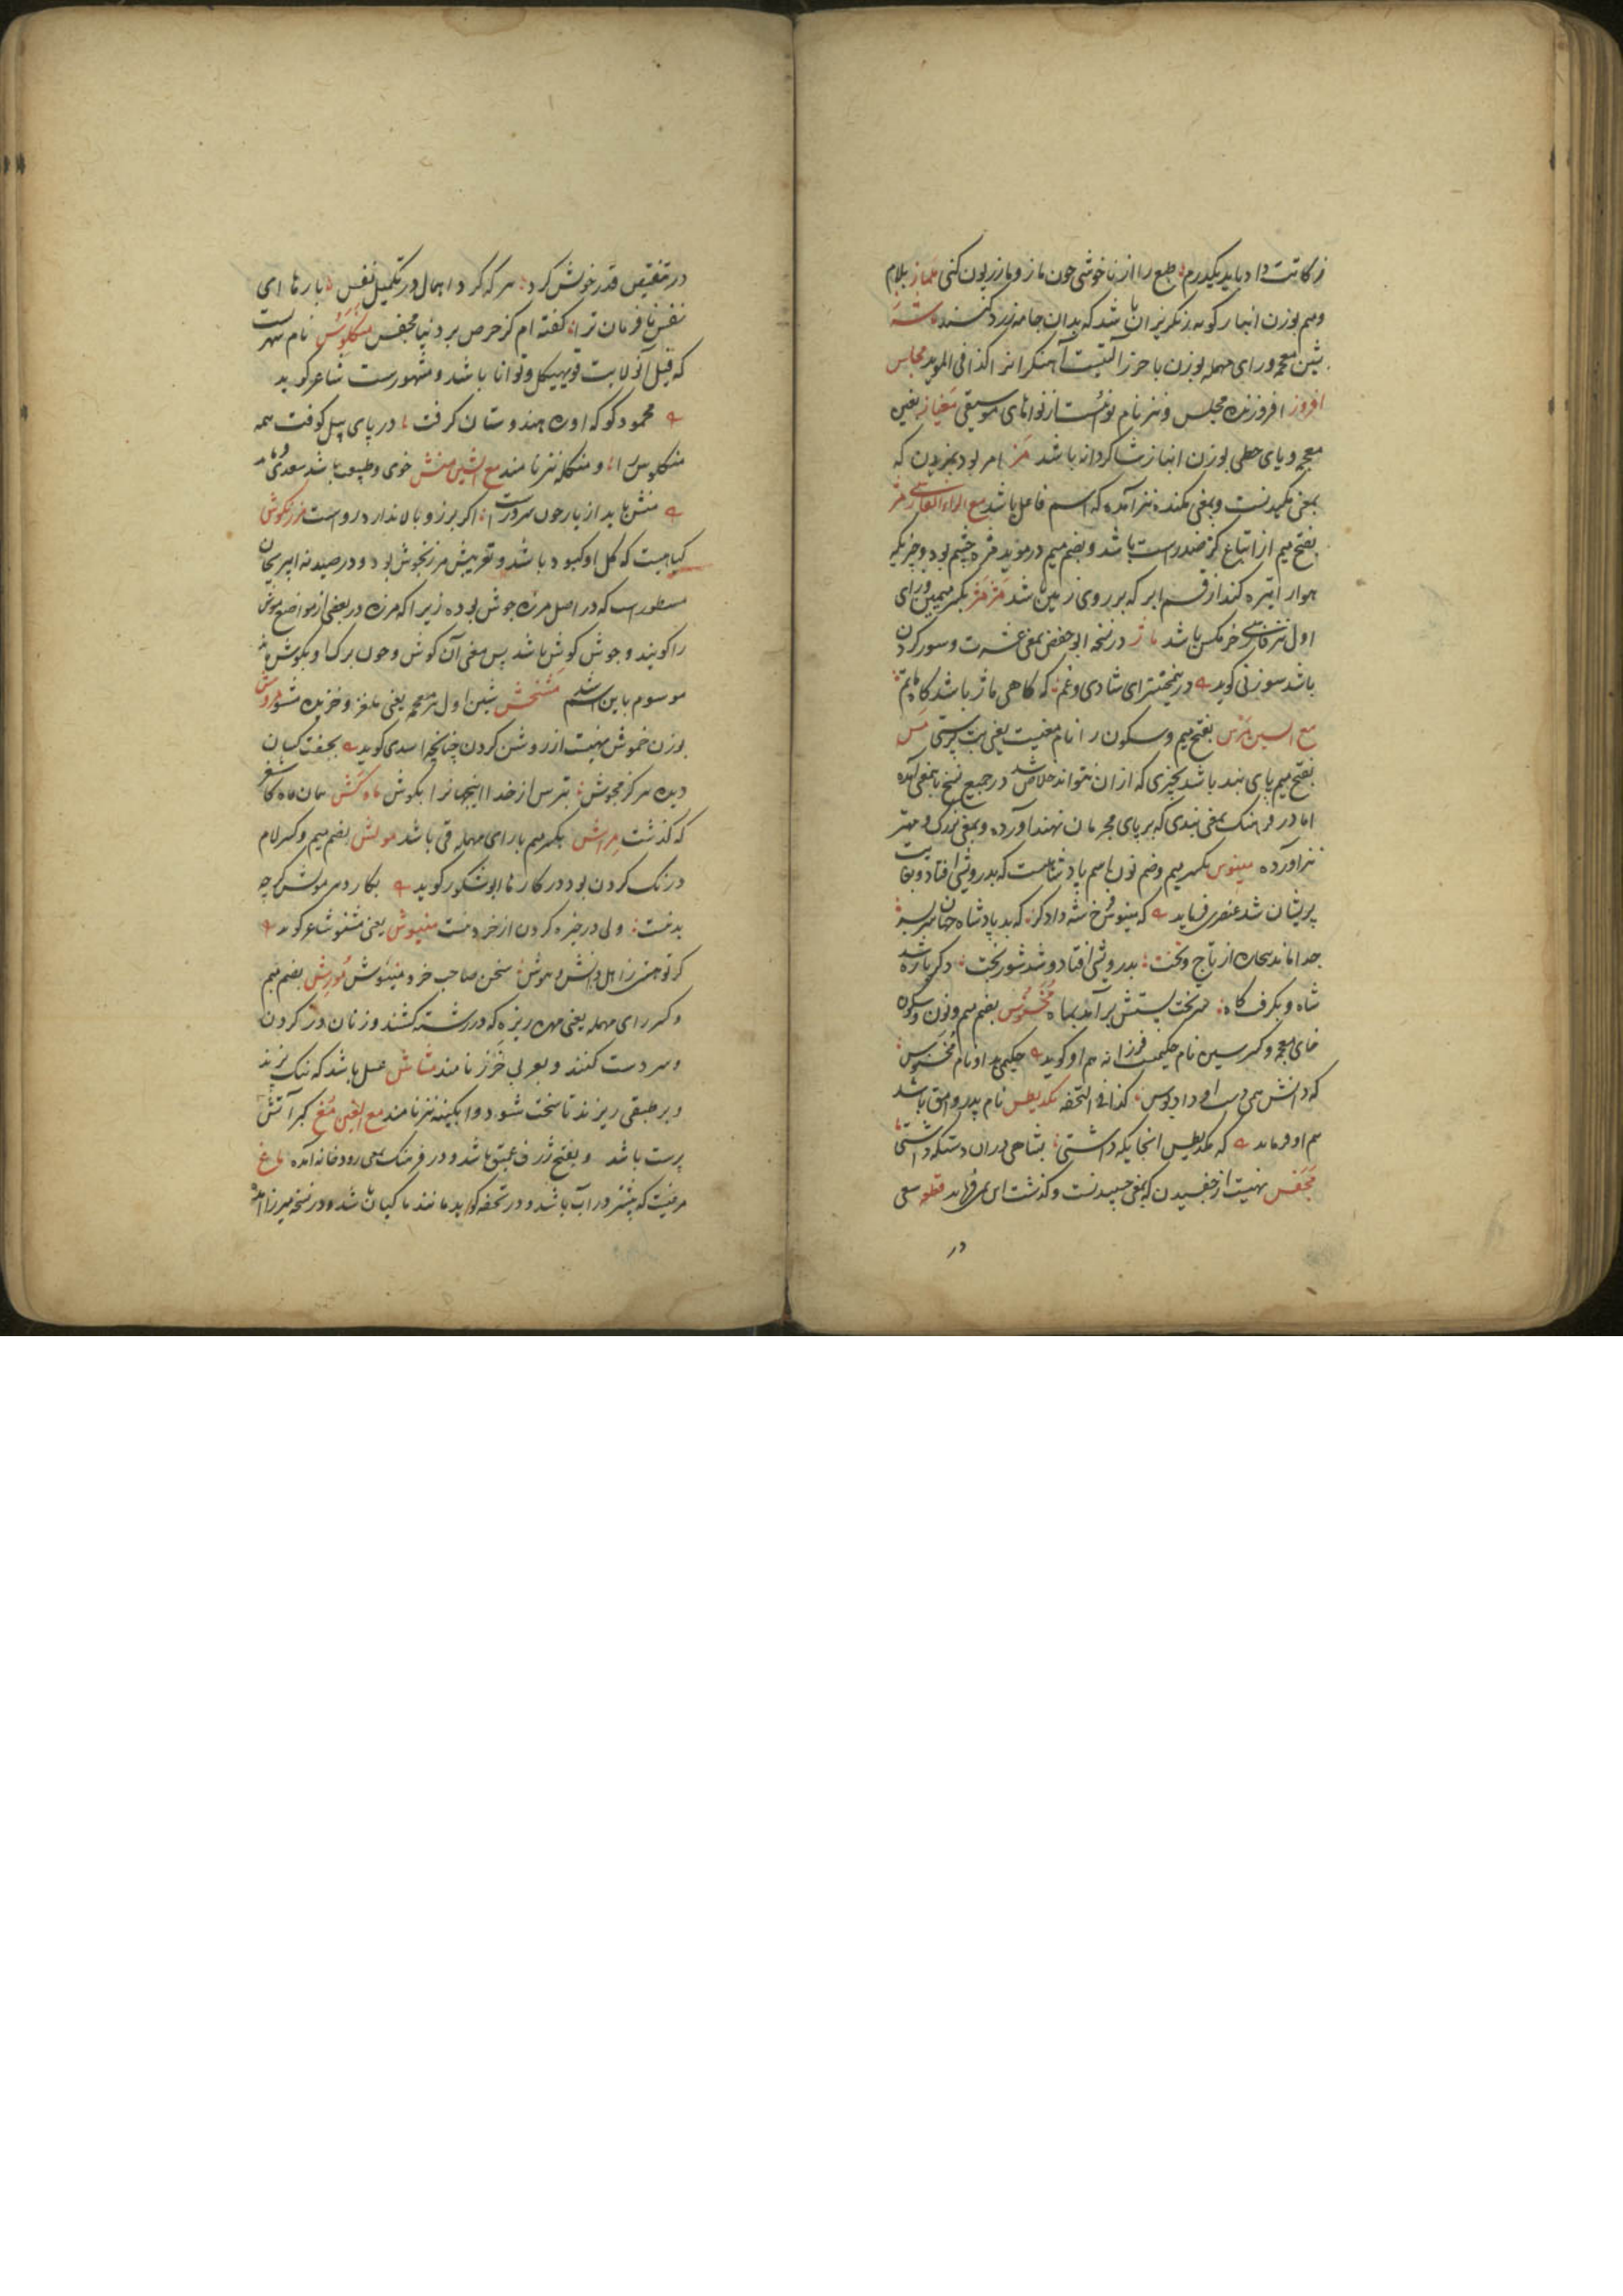 زکاتت داد باید یکدرم؛ طبع را از ناخوشی چون مازو مازریون کنی ملماز بلام
ومیم بوزن انباز کونه رنکریزان باشد که بدان جامه زرد کنند ماشنه
بشین معجمه ورای مهمله بوزن آلتیست آهنکرانرا کذا فی الموید مجلس
افروز افروزنده مجلس و نیز نام نوائیست از نواهای موسیقی مغیاز بغین
معجمه و یای حطی بوزن انباز شاکردانه باشد مز امر بود بمزیدن که
بمعنی مکیدنست وبمعنی مکنده نیز آمده که اسم فاعل باشد مع الزاء الفارسی مژ
بفتح میم از اتباع کژ ضد راست باشد وبضم میم در موید مژه چشم بود وچیزیکه
هوا را تیره کند از قسم ابر که بر روی زمین باشد مژمژ بکسر میمین وزای
اول نیز فارسی خرمکس باشد ماژ در نسخه ابو حفص بمعنی عشرت وسور کردن
باشد سوزنی کوید در شادی وغم؛ که کاهی ماژ باشد کاه ماتم
مع السین مرس بفتح میم وسکون را نام مغیست یعنی بت پرستی مس
بفتح میم پای بند باشد بچیزی که از ان نتواند خلاص شد در جمیع نسخ باینمعنی آمده
اما در فرهنک بمعنی بندی که بر پای مجرمان نهند آورده وبمعنی بزرک ومهتر
نیز آورده مینوس بکسر میم وضم نون اسم پادشاهیست که بدرویشی افتاد وبغایت
پریشان شد عنصری فرماید که مینوس فرخ شه داد کر؛ که بد پادشاه جهان سر بسر
جدا ماند بیچاره از تاج وتخت؛ بدرویشی افتاد وشد شوربخت؛ دکر باره شد
شاه وبکرفت کاه؛ سر تخت پستش برآمد بماه مخسنوس بضم میم ونون وسکون
خای معجمه وکسر سین نام حکیمیست فرزانه هم او کوید حکیمی بد او نام مخسنوس
که دانش همی دست او داد بوس؛ کذا فی التحفه مکذیطس نام پدر وامق باشد
هم او فرماید که مکذیطس آنجایکه داشتی؛ بشاهی دران دستکه داشتی
مجفس نهیست از جفسیدن که بمعنی چسپیدنست وکذشت ابن یمین فرماید قطعه سعی
در
در تنقیص قدر خویش کرد؛ هر که کرد اهمال در تکمیل نفس؛ بارها ای
نفس نافرمان ترا؛ کفته ام کز حرص بر دنیا مجفس منکلوس نام شهریست
که فیل آنولایت قوی هیکل وتوانا باشد ومشهورست شاعر کوید
محمود کو که او ره هندوستان کرفت؛ در پای پیل کوفت همه
منکلوس را؛ ومنکله نیز نامند مع الشین منش خوی وطبیعت باشد سعدی
منش باید از یار چون سرو راست؛ اکر برز وبالا ندارد رواست مرزنکوش
کیاهیست که کل او کبود باشد وتعریبش مرزنجوش بود ودر صیدنه ابوریحان
مسطورست که در اصل مرزه جوش بوده زیرا که مرزه در بعضی از مواضع موش
را کویند وجوش کوش باشد پس معنی آن کوش وچون برک او بکوش ماند
موسوم باین اسم شد مشخش بشین اول نیز معجمه یعنی ملغز وخزیده مشو مفروش
بوزن خموش نهیست از روشن کردن چنانچه اسدی کوید بجفت کسان
دیده هرکز مجوش؛ بترس از خدا اینجهانرا بکوش ماه کش همان ماه کاشغر
که کذشت مراش بکسر میم با رای مهمله قی باشد مولش بضم میم وکسر لام
درنک کردن بود در کارها ابوشکور کوید بکار در مولش کرچه
بدست؛ ولی در خیره کردن از خردست منیوش یعنی مشنو شاعر کوید
کر تو هستی ز اهل دانش وهوش؛ سخن صاحب خرد منیوش مورش بضم میم
وکسر رای مهمله یعنی مهره ریزه که در رشته کشند وزنان در کردن
وسر دست کنند وبعربی خرز نامند مشاش عسل باشد که نیک پزند
وبر طبقی ریزند تا سخت شود وآبکینه نیز نامند مع الغین مغ کبر آتش
پرست باشد وبفتح ژرف عمیق باشد ودر فرهنک بمعنی رودخانه آمده ماغ
مرغیست که بیشتر در آب باشد ودر تحفه کوید مانند ماکیان باشد ودر نسخه میرزا آمده